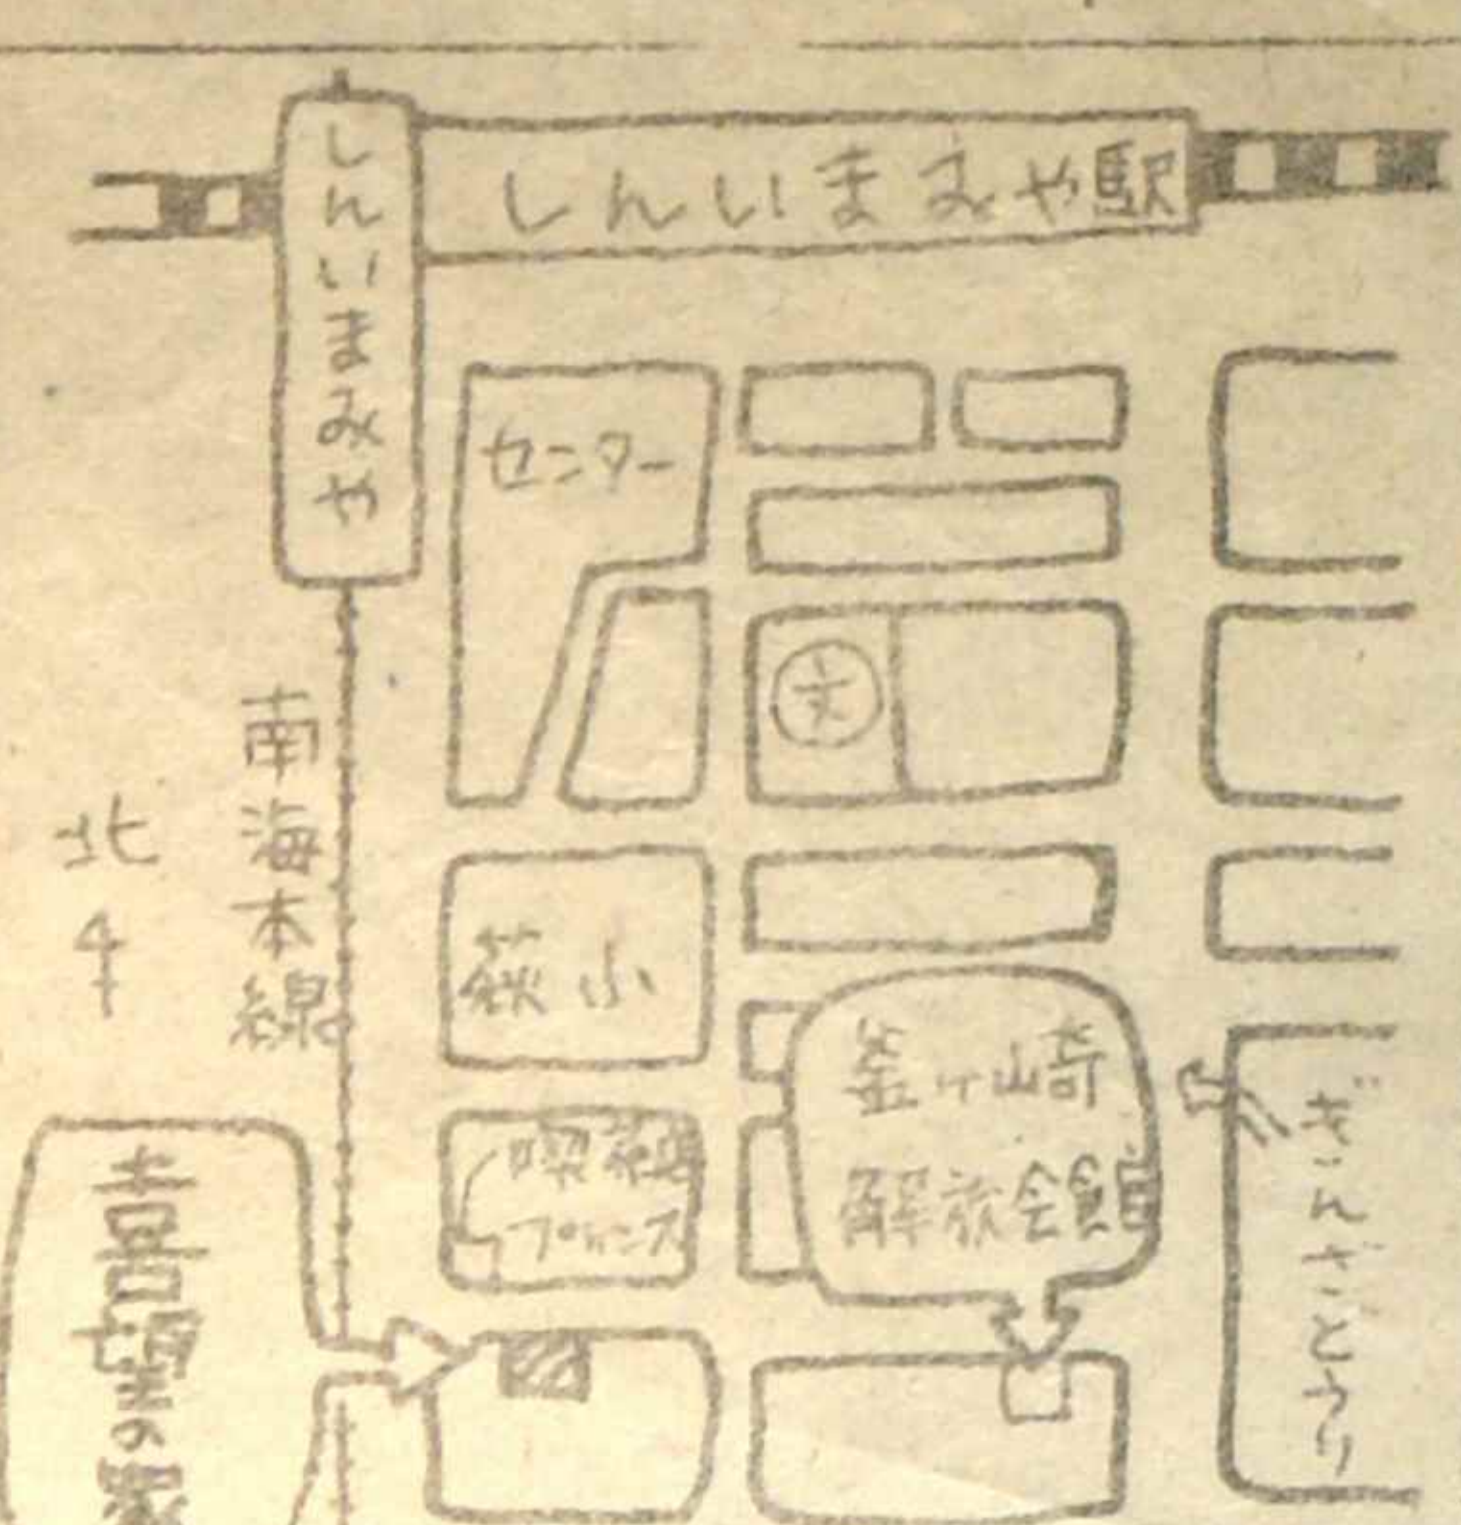 しんいまみや
しんいまみや駅
センター
文
南海本線
北
萩小
釜ヶ崎
解放会館
喫茶店
プリンス
ぎんざとうり
喜望の家